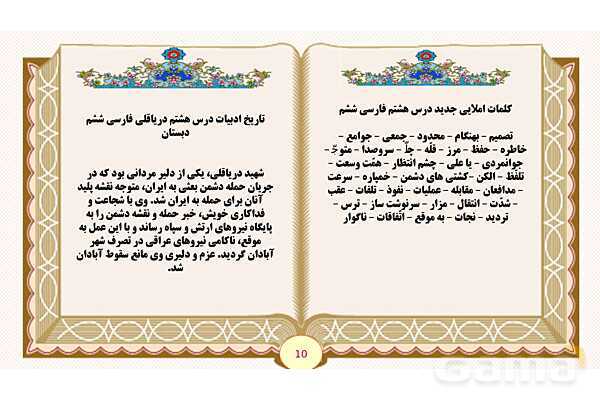 کلمات املایی جدید درس هشتم فارسی ششم
تصمیم - بهنگام - محدود - جمعی - جوامع -
خاطره - حفظ - مرز - قلّه - جلّ - سروصدا - متوجّ -
جوانمردی - یا علی - چشم انتظار - همّت وسعت -
تلفّظ - الکن - کشتی های دشمن - خمپاره - سرعت
- مدافعان - مقابله - عملیات - نفوذ - تلفات - عقب
- شدّت - انتقال - مزار - سرنوشت ساز - ترس -
تردید - نجات - به موقع - اتّفاقات - ناگوار
تاریخ ادبیات درس هشتم دریاقلی فارسی ششم
دبستان
شهید دریاقلی، یکی از دلیر مردانی بود که در
جریان حمله دشمن بعثی به ایران، متوجه نقشه پلید
آنان برای حمله به ایران شد. وی با شجاعت و
فداکاری خویش، خبر حمله و نقشه دشمن را به
پایگاه نیروهای ارتش و سپاه رساند و با این عمل به
موقع، ناکامی نیروهای عراقی در تصرف شهر
آبادان گردید. عزم و دلیری وی مانع سقوط آبادان
شد.
10
Gama